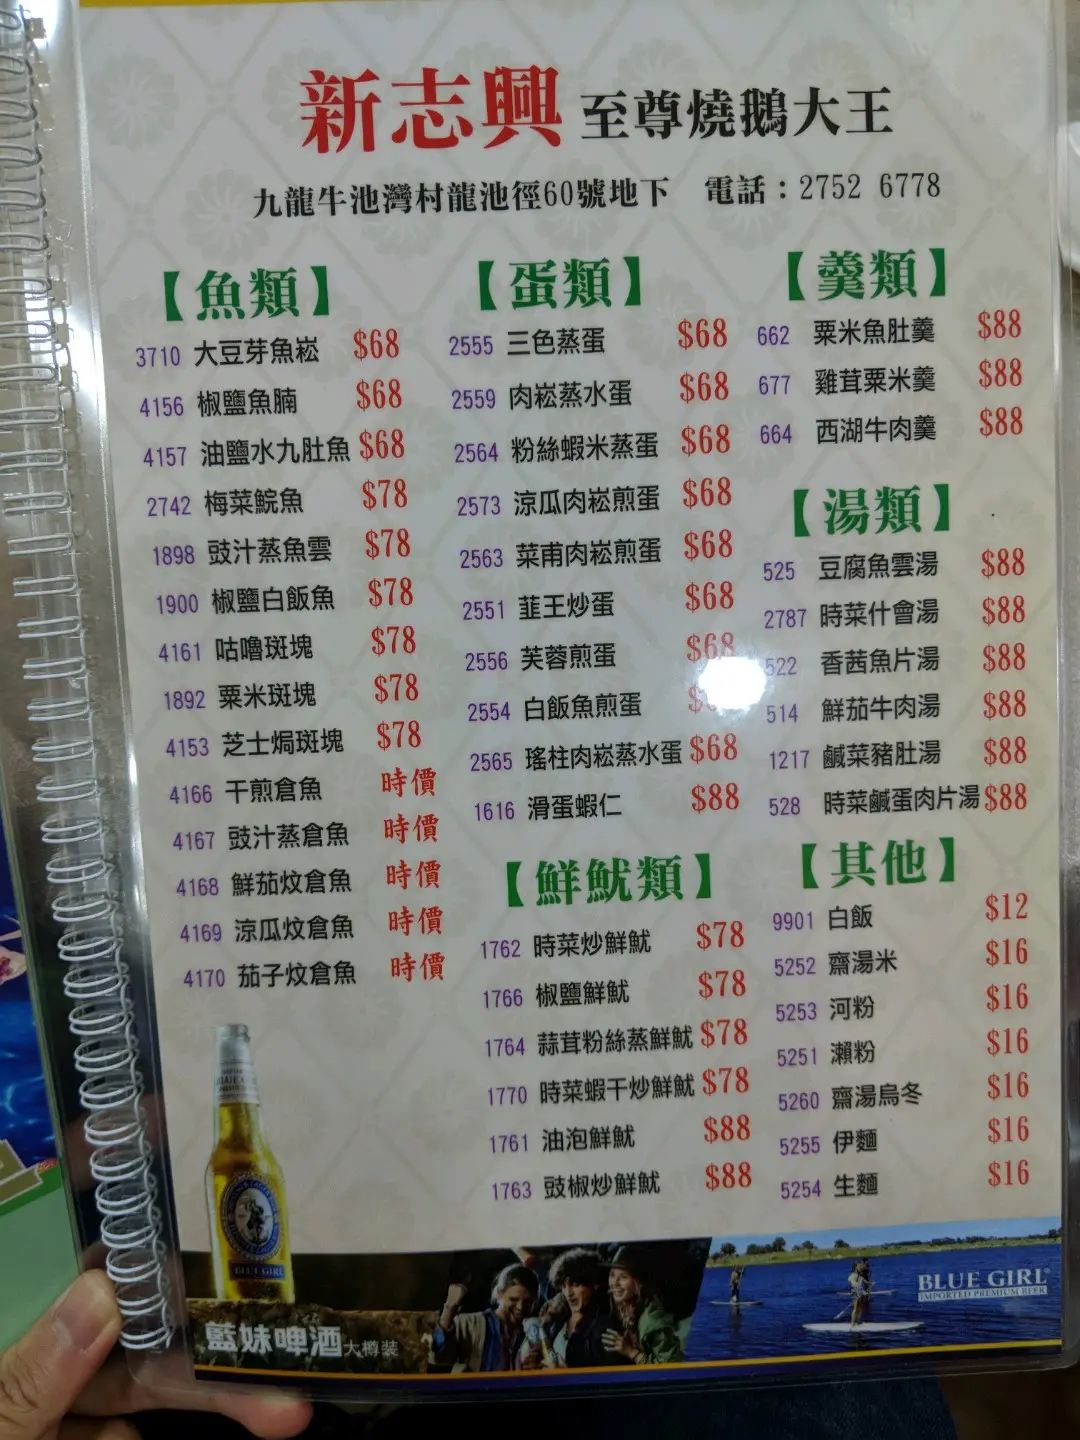 新志興 至尊燒鵝大王
九龍牛池灣村龍池徑60號地下 電話：2752 6778
【魚類】
3710 大豆芽魚崧 $68
4156 椒鹽魚腩 $68
4157 油鹽水九肚魚 $68
2742 梅菜鯇魚 $78
1898 豉汁蒸魚雲 $78
1900 椒鹽白飯魚 $78
4161 咕嚕斑塊 $78
1892 粟米斑塊 $78
4153 芝士焗斑塊 $78
4166 干煎倉魚 時價
4167 豉汁蒸倉魚 時價
4168 鮮茄炆倉魚 時價
4169 涼瓜炆倉魚 時價
4170 茄子炆倉魚 時價
【蛋類】
2555 三色蒸蛋 $68
2559 肉崧蒸水蛋 $68
2564 粉絲蝦米蒸蛋 $68
2573 涼瓜肉崧煎蛋 $68
2563 菜甫肉崧煎蛋 $68
2551 韮王炒蛋 $68
2556 芙蓉煎蛋 $68
2554 白飯魚煎蛋
2565 瑤柱肉崧蒸水蛋 $68
1616 滑蛋蝦仁 $88
【鮮魷類】
1762 時菜炒鮮魷 $78
1766 椒鹽鮮魷 $78
1764 蒜茸粉絲蒸鮮魷 $78
1770 時菜蝦干炒鮮魷 $78
1761 油泡鮮魷 $88
1763 豉椒炒鮮魷 $88
【羹類】
662 粟米魚肚羹 $88
677 雞茸粟米羹 $88
664 西湖牛肉羹 $88
【湯類】
525 豆腐魚雲湯 $88
2787 時菜什會湯 $88
522 香茜魚片湯 $88
514 鮮茄牛肉湯 $88
1217 鹹菜豬肚湯 $88
528 時菜鹹蛋肉片湯 $88
【其他】
9901 白飯 $12
5252 齋湯米 $16
5253 河粉 $16
5251 瀨粉 $16
5260 齋湯烏冬 $16
5255 伊麵 $16
5254 生麵 $16
BLUE GIRL
藍妹啤酒大樽裝
BLUE GIRL
IMPORTED PREMIUM BEER